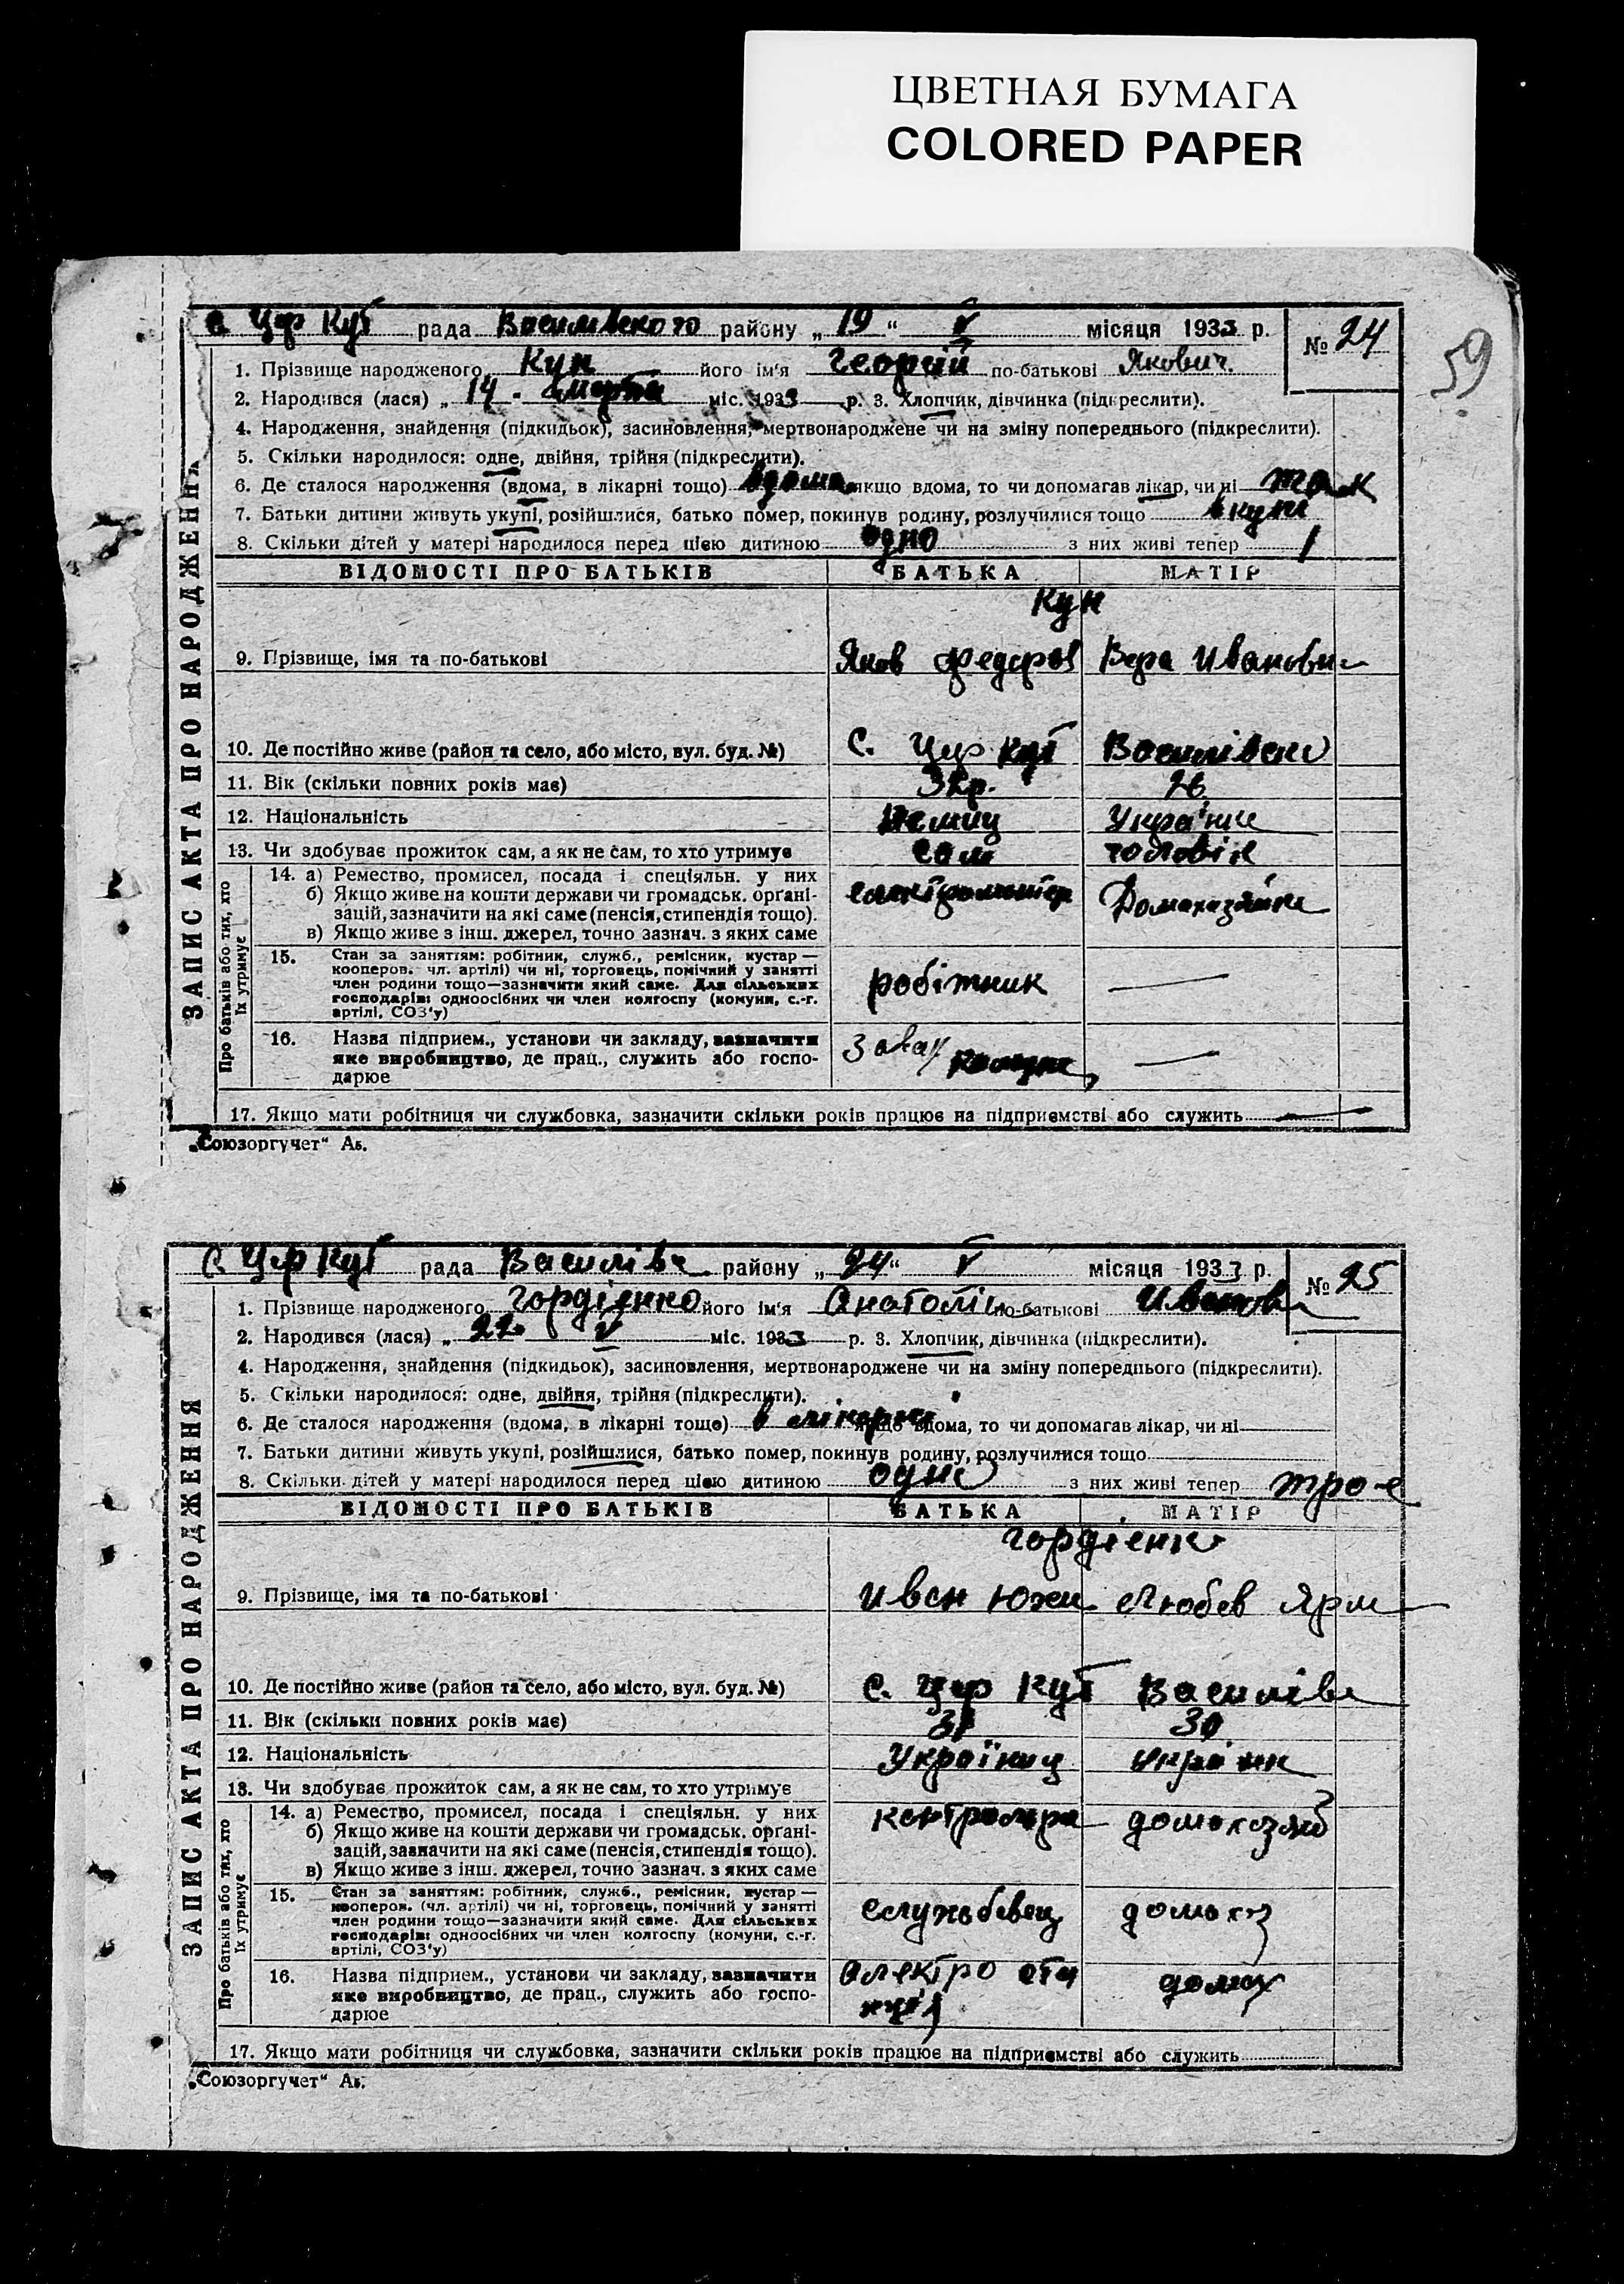 ЦВЕТНАЯ БУМАГА
COLORED PAPER
59
с. Цар Кут рада Василівского району „19“ V місяця 1933 р.
№ 24
ЗАПИС АКТА ПРО НАРОДЖЕННЯ
1. Прізвище народженого Кун його ім'я Георгій по-батькові Якович.
2. Народився (лася) „14 марта міс. 1933 р. 3. Хлопчик, дівчинка (підкреслити).
4. Народження, знайдення (підкидьок), засиновлення, мертвонароджене чи на зміну попереднього (підкреслити).
5. Скільки народилося: одне, двійня, трійня (підкреслити).
6. Де сталося народження (вдома, в лікарні тощо) вдома якщо вдома, то чи допомагав лікар, чи ні так
7. Батьки дитини живуть укупі, розійшлися, батько помер, покинув родину, розлучилися тощо вкупі
8. Скільки дітей у матері народилося перед цією дитиною одно з них живі тепер 1
ВІДОМОСТІ ПРО БАТЬКІВ БАТЬКА МАТІР
Кун
9. Прізвище, імя та по-батькові Яков Федоров Вера Ивановн
10. Де постійно живе (район та село, або місто, вул. буд. №) с. Цар Кут Василівськ
11. Вік (скільки повних років має) 32р. 26
12. Національність Немиц Україн
13. Чи здобуває прожиток сам, а як не сам, то хто утримує сам чоловік
Про батьків або тих, хто їх утримує
14. а) Ремество, промисел, посада і спеціяльн. у них
б) Якщо живе на кошти держави чи громадськ. орґані-
зацій, зазначити на які саме (пенсія, стипендія тощо).
в) Якщо живе з інш. джерел, точно зазнач. з яких саме
електромонтер Домохазяйка
15. Стан за заняттям: робітник, служб., ремісник, кустар —
кооперов. чл. артілі) чи ні, торговець, помічний у занятті
член родини тощо—зазначити який саме. Для сільських
господарів: одноосібних чи член колгоспу (комуни, с.-г.
артілі, СОЗ'у)
робітник —
16. Назва підприєм., установи чи закладу, зазначити
яке виробництво, де прац., служить або госпо-
дарює
—
17. Якщо мати робітниця чи службовка, зазначити скільки років працює на підприємстві або служить —
„Союзоргучет“ Аз.
с. Цар Кут рада Василівс району „24“ V місяця 1933 р.
№ 25
ЗАПИС АКТА ПРО НАРОДЖЕННЯ
1. Прізвище народженого Гордієнко його ім'я Анатолій по-батькові Иванов
2. Народився (лася) „22 V міс. 1933 р. 3. Хлопчик, дівчинка (підкреслити).
4. Народження, знайдення (підкидьок), засиновлення, мертвонароджене чи на зміну попереднього (підкреслити).
5. Скільки народилося: одне, двійня, трійня (підкреслити).
6. Де сталося народження (вдома, в лікарні тощо) в лікарні якщо вдома, то чи допомагав лікар, чи ні
7. Батьки дитини живуть укупі, розійшлися, батько помер, покинув родину, розлучилися тощо
8. Скільки дітей у матері народилося перед цією дитиною одно з них живі тепер трое
ВІДОМОСТІ ПРО БАТЬКІВ БАТЬКА МАТІР
Гордієнко
9. Прізвище, імя та по-батькові Иван Юхи Любов Ярм
10. Де постійно живе (район та село, або місто, вул. буд. №) с. Цар Кут Василів
11. Вік (скільки повних років має) 31 30
12. Національність Україниц україн
13. Чи здобуває прожиток сам, а як не сам, то хто утримує
Про батьків або тих, хто їх утримує
14. а) Ремество, промисел, посада і спеціяльн. у них
б) Якщо живе на кошти держави чи громадськ. орґані-
зацій, зазначити на які саме (пенсія, стипендія тощо).
в) Якщо живе з інш. джерел, точно зазнач. з яких саме
контролера домохозяй
15. Стан за заняттям: робітник, служб., ремісник, кустар —
кооперов. (чл. артілі) чи ні, торговець, помічний у занятті
член родини тощо—зазначити який саме. Для сільських
господарів: одноосібних чи член колгоспу (комуни, с.-г.
артілі, СОЗ'у)
службовец домохоз
16. Назва підприєм., установи чи закладу, зазначити
яке виробництво, де прац., служить або госпо-
дарює
электро ста домох
нція
17. Якщо мати робітниця чи службовка, зазначити скільки років працює на підприємстві або служить
„Союзоргучет“ Аз.